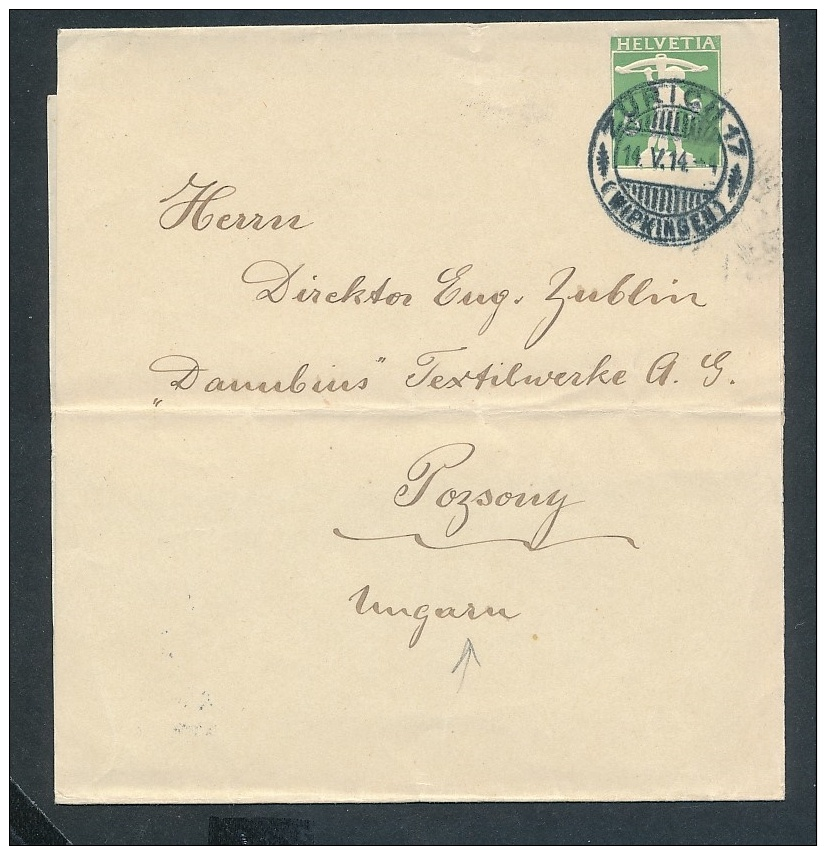 HELVETIA
ZÜRICH 17
14. V. 14.
(WIPKINGEN)
Herrn
Direktor Eug. Zublin
„Danubius" Textilwerke A. G.
Pozsony
Ungarn